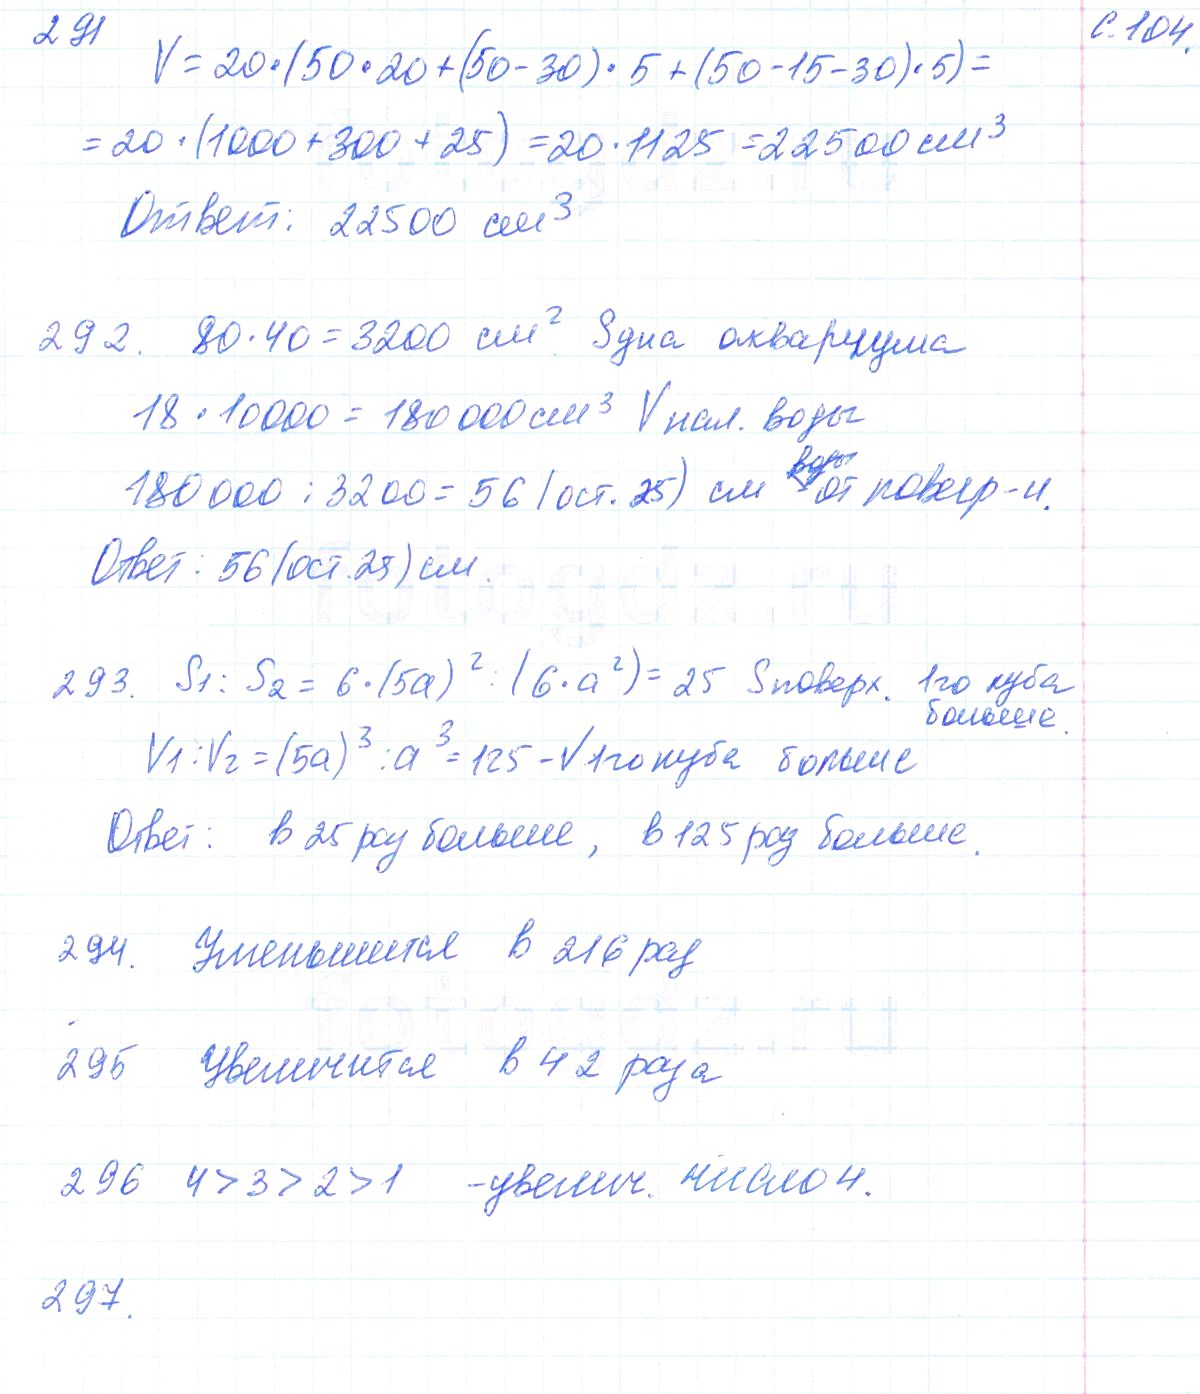 291
с. 104.
V = 20·(50·20+(50-30)·5+(50-15-30)·5)=
=20·(1000+300+25)=20·1125=22500см³
Ответ: 22500 см³
292. 80·40=3200 см² Sдна аквариума
18·10000=180000см³ Vнал. воды
воды
180000:3200=56(ост.25) см - от поверх-и.
Ответ: 56(ост.25)см.
293. S1:S2=6·(5a)²:(6·a²)=25 Sповерх. 1го куба
больше.
V1:V2=(5a)³:a³=125-V1го куба больше
Ответ: в 25 раз больше, в 125 раз больше.
294. Уменьшится в 216 раз
295 Увеличится в 42 раза
296 4>3>2>1 -увелич. число 4.
297.
fotogdz.ru
fotogdz.ru
fotogdz.ru